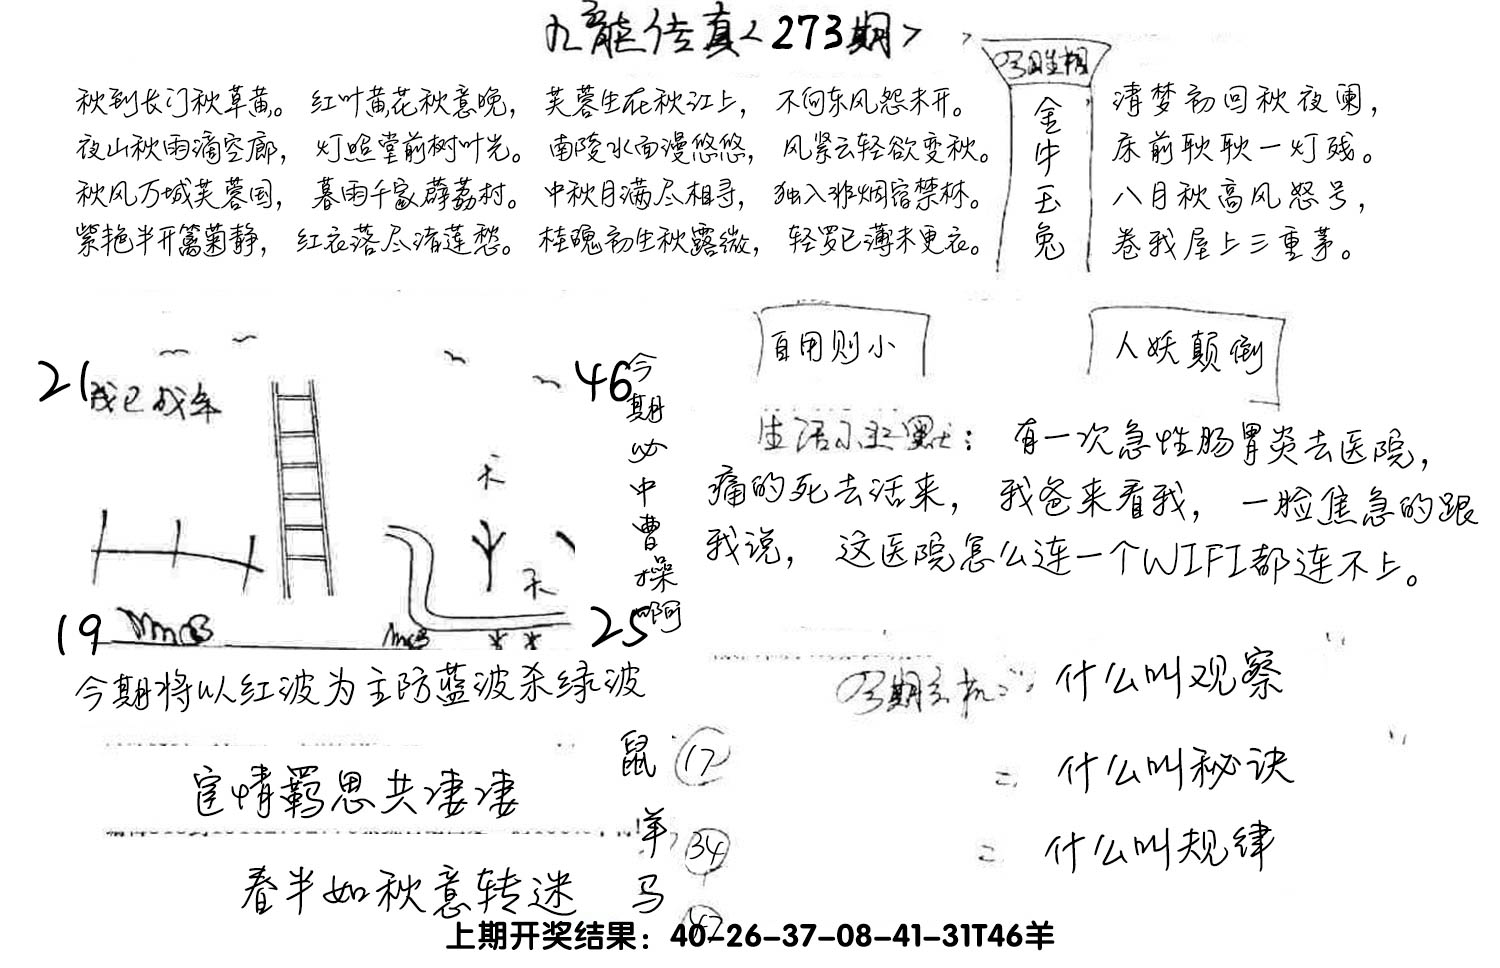 九龙传真<273期>
秋到长门秋草黄。 红叶黄花秋意晚， 芙蓉生在秋江上， 不向东风怨未开。
夜山秋雨滴空廊， 灯照堂前树叶光。 南陵水面漫悠悠， 风紧云轻欲变秋。
秋风万城芙蓉国， 暮雨千家薜荔村。 中秋月满尽相寻， 独入非烟宿禁林。
紫艳半开篱菊静， 红衣落尽渚莲愁。 桂魄初生秋露微， 轻罗已薄未更衣。
今日生相
金牛玉兔
清梦初回秋夜阑，
床前耿耿一灯残。
八月秋高风怒号，
卷我屋上三重茅。
21
46
19
25
禾
禾
今期必中曹操啊
今期将以红波为主防蓝波杀绿波
自用则小
人妖颠倒
有一次急性肠胃炎去医院，
痛的死去活来， 我爸来看我， 一脸焦急的跟
我说， 这医院怎么连一个WIFI都连不上。
什么叫观察
= 什么叫秘诀
= 什么叫规律
宦情羁思共凄凄
春半如秋意转迷
鼠 17
羊 34
马
上期开奖结果：40-26-37-08-41-31T46羊